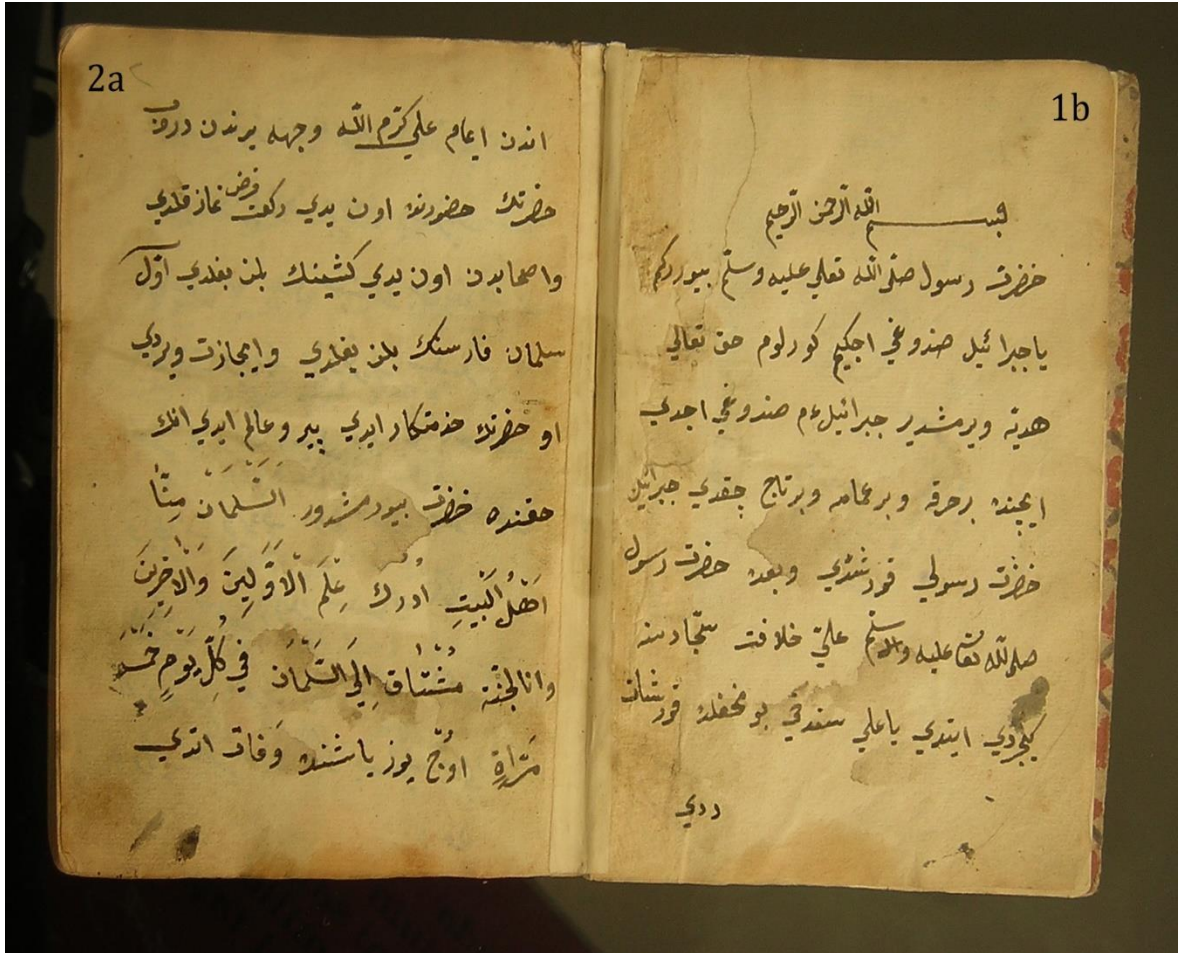 1b
بسم الله الرحمن الرحيم
حضرت رسول صلّى الله تعلي عليه وسلّم بيورركم
يا جبرائيل صندوغي اجكيم كورلوم حق تعالي
هديه ويرمشدير جبرائيل ءم صندوغي اجدي
ايچنده برحرقه وبر عمامه وبرتاج چقدي جبرائيل
حضرت رسولي قورشتدي وبعده حضرت رسول
صلى الله تعا عليه والسلم عليّ خلافت سجّادسنه
كچردي ايتدي ياعلي سندخي بو نخفلده قورشات
ددي
2a
اندن ايمام علي كرّم الله وجهه يرندن دروب
حضرتك حضورنده اون يدي ركعت فرض نماز قلدي
واصحابدن اون يدي كشينك بلن بغلدي اوّل
سلمان فارسنك بلن بغلدي وايجازت ويردي
او حضرتك خدمتكار ايدي پير وعالم ايدي انك
حقنده حضرت بيورمشدور اَلسَّلمَان مِنَّا
اَهْلُ الْبَيْتِ اُدْرك عِلْمَ الْاَوَّلِينَ وَالْاٰخِرِينَ
وانالجنّة مُشْتٰاق اِلَي السَّلْمَان في كُلِّ يَوْمٍ خَمْسَ
مَرّاةٍ اوُچ يوز ياشنده وَفات اتدي